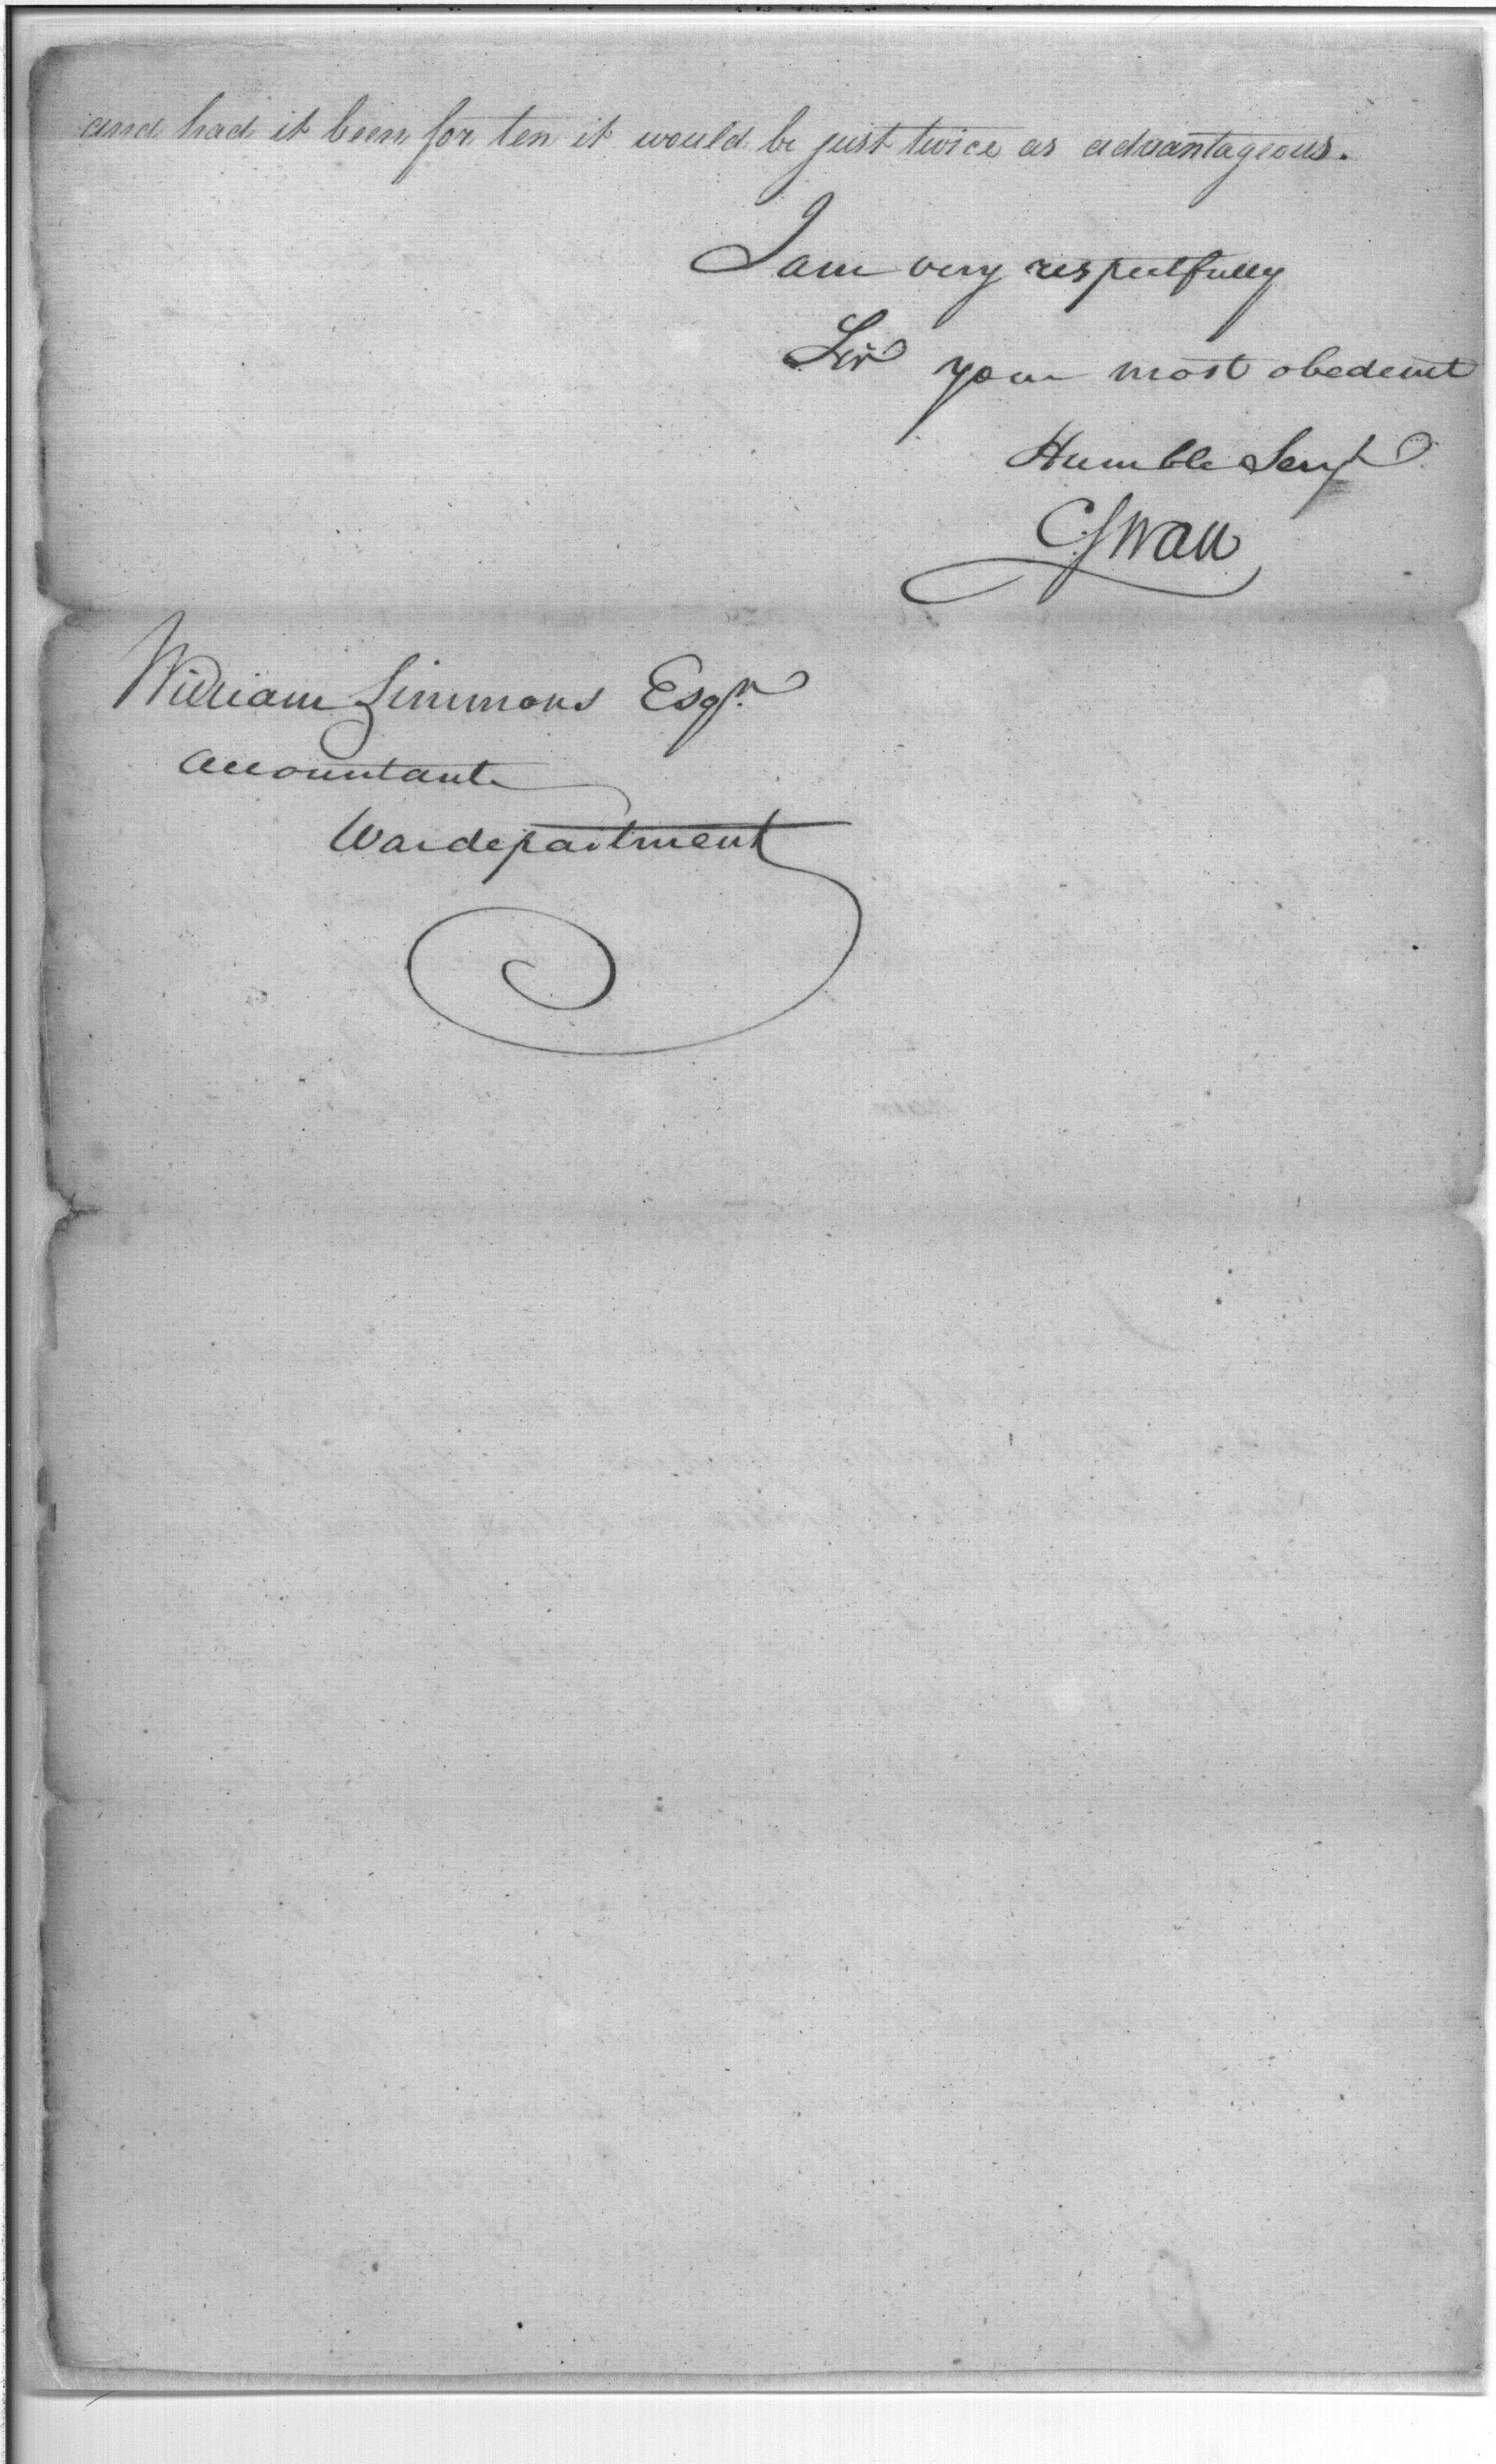 and had it been for ten it would be just twice as advantageous.
I am very respectfully
Sir your most obedeint
Humble Servt
C Swan
William Simmons Esqr.
Accountant
Wardepartment